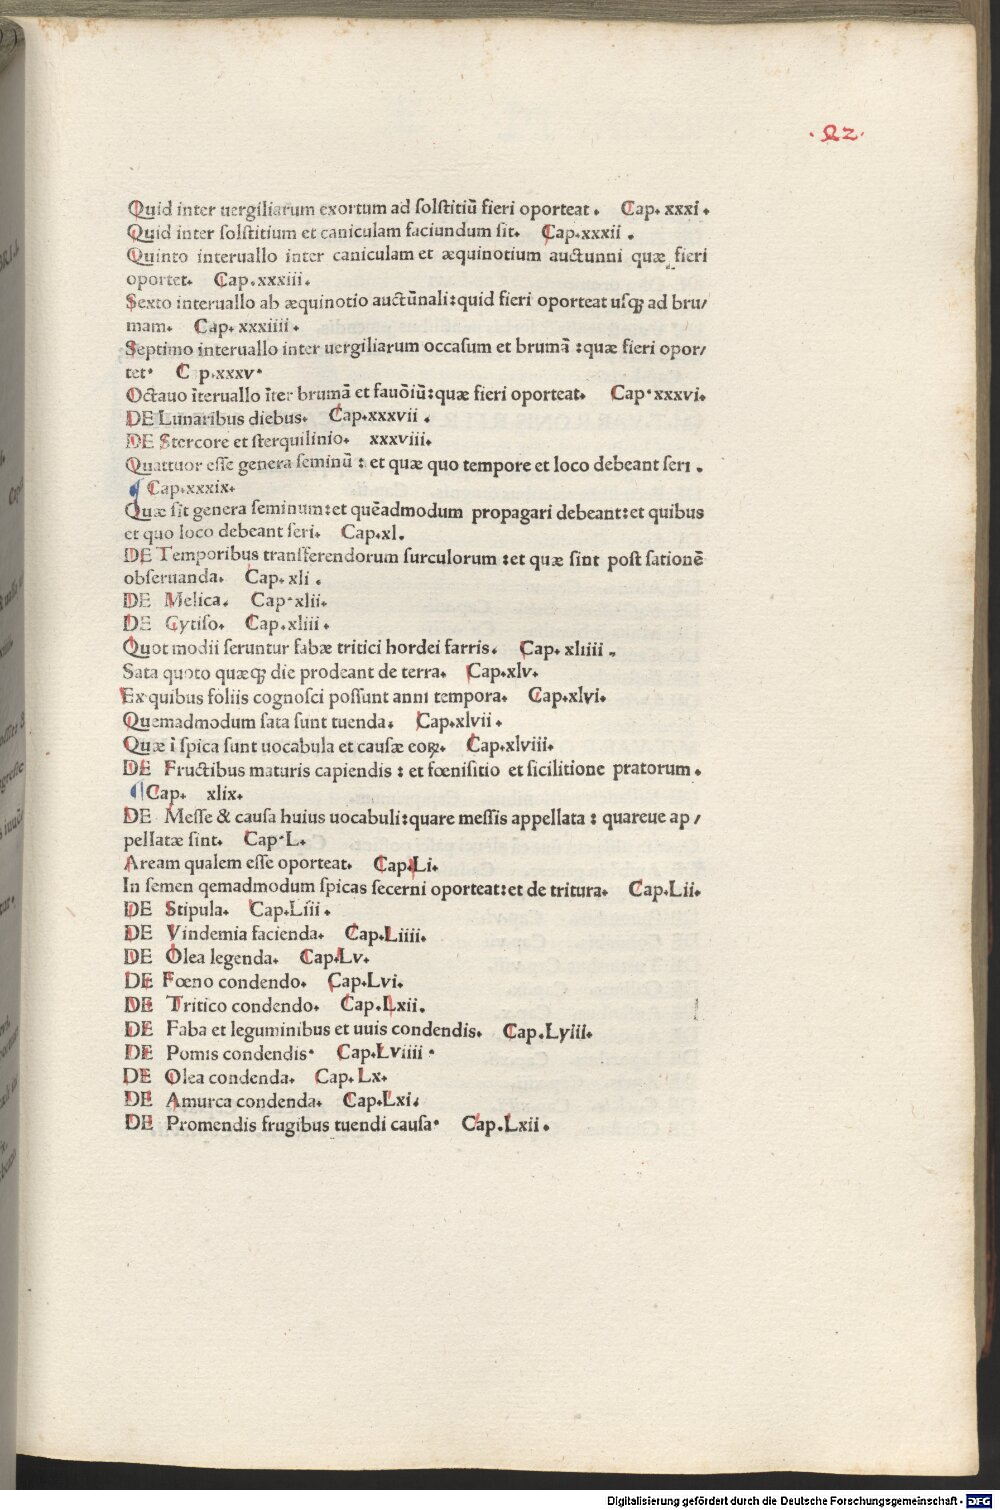 .22.
Quid inter uergiliarum exortum ad solstitiū fieri oporteat. Cap. xxxi.
Quid inter solstitium et caniculam faciundum sit. Cap.xxxii.
Quinto interuallo inter caniculam et æquinotium auctunni quæ fieri
oportet. Cap.xxxiii.
Sexto interuallo ab æquinotio auctūnali:quid fieri oporteat usqꝫ ad bru/
mam. Cap. xxxiiii.
Septimo interuallo inter uergiliarum occasum et brumā :quæ fieri opor/
tet. C p.xxxv.
Octauo īteruallo īter brumā et fauōiū:quæ fieri oporteat. Cap.xxxvi.
DE Lunaribus diebus. Cap.xxxvii.
DE Stercore et sterquilinio. xxxviii.
Quattuor esse genera seminū : et quæ quo tempore et loco debeant seri.
¶ Cap.xxxix.
Quæ sit genera seminum:et quēadmodum propagari debeant:et quibus
et quo loco debeant seri. Cap.xl.
DE Temporibus transferendorum surculorum :et quæ sint post sationē
obseruanda. Cap. xli.
DE Melica. Cap.xlii.
DE Cytiso. Cap.xliii.
Quot modii seruntur fabæ tritici hordei farris. Cap. xliiii.
Sata quoto quæqꝫ die prodeant de terra. Cap.xlv.
Ex quibus foliis cognosci possunt anni tempora. Cap.xlvi.
Quemadmodum sata sunt tuenda. Cap.xlvii.
Quæ ī spica sunt uocabula et causæ eoꝝ. Cap.xlviii.
DE Fructibus maturis capiendis : et fœnisitio et sicilitione pratorum.
¶Cap. xlix.
DE Messe & causa huius uocabuli:quare messis appellata : quareue ap/
pellatæ sint. Cap.L.
Aream qualem esse oporteat. Cap.Li.
In semen qemadmodum spicas secerni oporteat:et de tritura. Cap.Lii.
DE Stipula. Cap.Liii.
DE Vindemia facienda. Cap.Liiii.
DE Olea legenda. Cap.Lv.
DE Fœno condendo. Cap.Lvi.
DE Tritico condendo. Cap.Lxii.
DE Faba et leguminibus et uuis condendis. Cap.Lyiii.
DE Pomis condendis. Cap.Lviiii.
DE Olea condenda. Cap. Lx.
DE Amurca condenda. Cap.Lxi.
DE Promendis frugibus tuendi causa. Cap.Lxii.
Digitalisierung gefördert durch die Deutsche Forschungsgemeinschaft - DFG